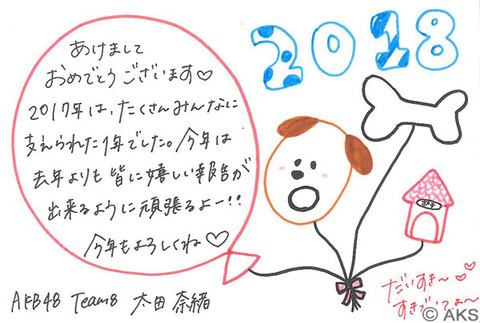 2018
あけまして
おめでとうございます♡
2017年は、たくさんみんなに
支えられた1年でした。今年は
去年よりも皆に嬉しい報告が
出来るように頑張るよー!!
今年もよろしくね♡
AKB48 Team8 太田 奈緒
だいすき〜♡♡
© AKS